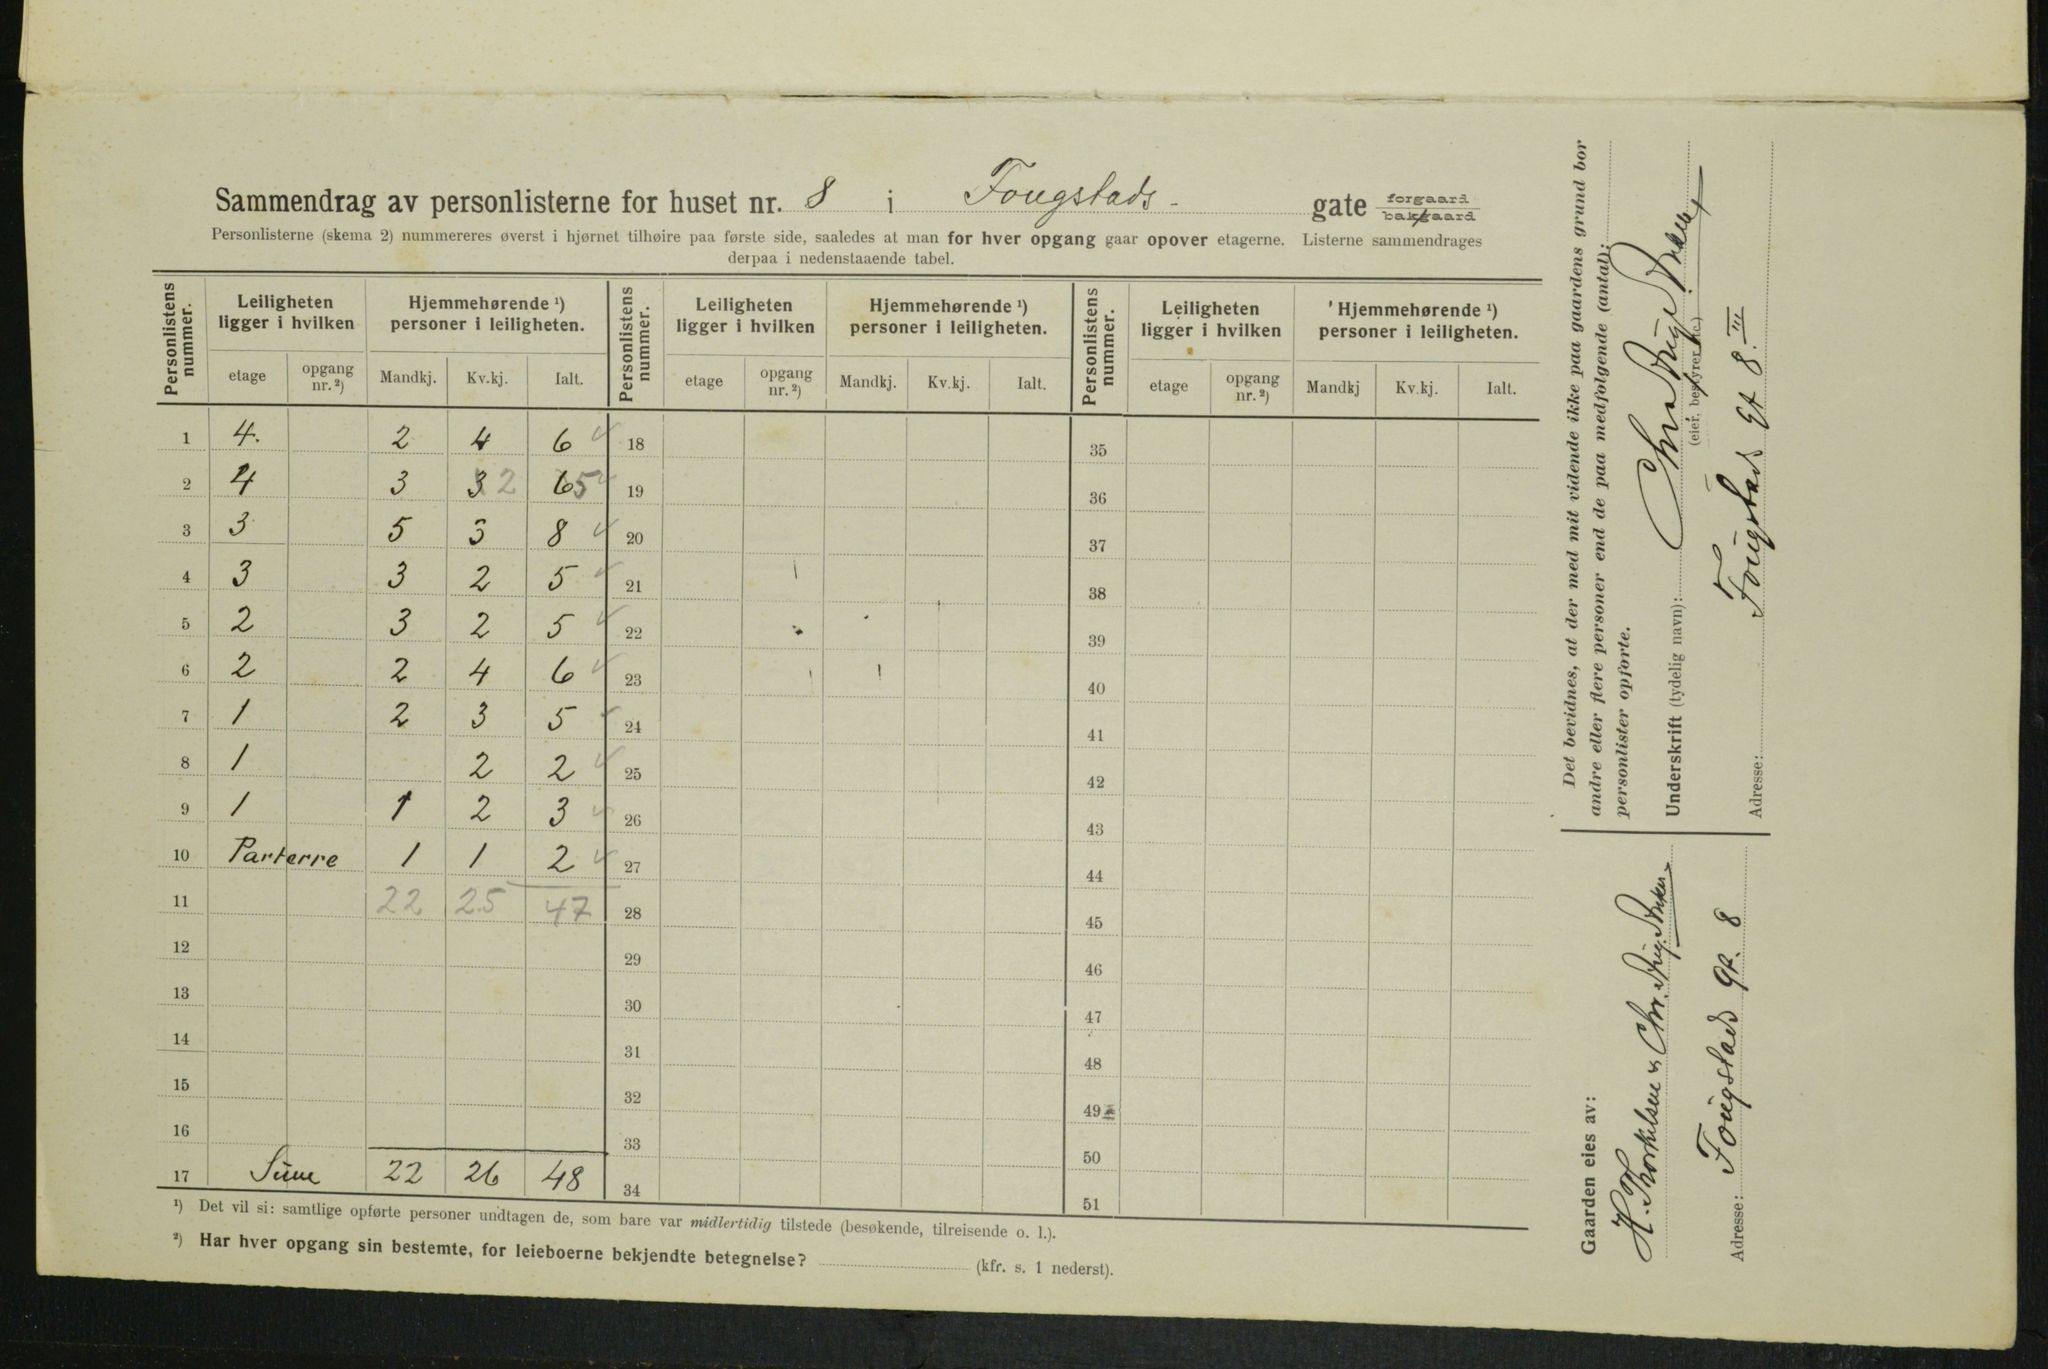 Sammendrag av personlisterne for huset nr. 8 i Fougstads- gate forgaard bakgaard
Personlisterne (skema 2) nummereres øverst i hjørnet tilhøire paa første side, saaledes at man for hver opgang gaar opover etagerne. Listerne sammendrages
derpaa i nedenstaaende tabel.
Personlistens nummer. Leiligheten ligger i hvilken Hjemmehørende ¹) personer i leiligheten. Personlistens nummer. Leiligheten ligger i hvilken Hjemmehørende ¹) personer i leiligheten. Personlistens nummer. Leiligheten ligger i hvilken Hjemmehørende ¹) personer i leiligheten.
etage opgang nr. ²) Mandkj. Kv.kj. Ialt. etage opgang nr. ²) Mandkj. Kv.kj. Ialt. etage opgang nr. ²) Mandkj Kv.kj. Ialt.
1 4. 2 4 6 18 35
2 4 3 3 2 6 5 19 36
3 3 5 3 8 20 37
4 3 3 2 5 21 38
5 2 3 2 5 22 39
6 2 2 4 6 23 40
7 1 2 3 5 24 41
8 1 2 2 25 42
9 1 1 2 3 26 43
10 Parterre 1 1 2 27 44
11 22 25 47 28 45
12 29 46
13 30 47
14 31 48
15 32 49
16 33 50
17 Sum 22 26 48 34 51
¹) Det vil si: samtlige opførte personer undtagen de, som bare var midlertidig tilstede (besøkende, tilreisende o. l.).
²) Har hver opgang sin bestemte, for leieboerne bekjendte betegnelse? (kfr. s. 1 nederst).
Det bevidnes, at der med mit vidende ikke paa gaardens grund bor
andre eller flere personer end de paa medfølgende (antal):
personlister opførte.
Underskrift (tydelig navn):
(eier, bestyrer etc.)
Adresse: Fougstads gt 8. III
Gaarden eies av:
H. Thorkilsen & Chr.
Adresse: Fougstads gt. 8